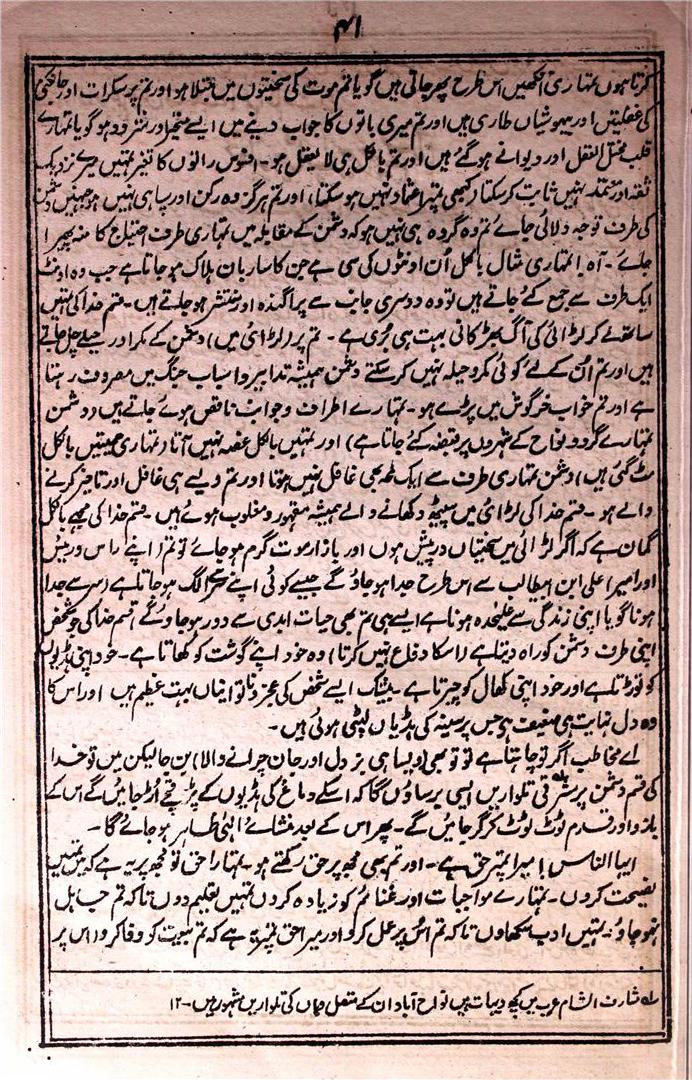 ۴۱
کرتا ہوں تمہاری آنکھیں اس طرح پھر جاتی ہیں گویا تم موت کی سختیوں میں مبتلا ہو اور تم پر سکرات اور جانکنی
کی غفلتیں اور بیہوشیاں طاری ہیں اور تم میری باتوں کا جواب دینے میں ایسے متحیر اور متردد ہو گویا تمہارے
قلب مختل العقل اور دیوانے ہوگئے ہیں اور تم بالکل ہی لا یعقل ہو۔ افسوس راتوں کا تغیر تمہیں میرے نزدیک
ثقہ اور معتمد نہیں ثابت کرسکتا (کبھی تمپر اعتماد نہیں ہوسکتا) اور تم ہرگز وہ رکن اور سپاہی نہیں ہو جنہیں دشمن
کی طرف توجہ دلائی جائے تم وہ گروہ ہی نہیں ہو کہ دشمن کے مقابلہ میں تمہاری طرف احتیاج کا منہ پھیرا
جائے۔ آہ! تمہاری مثال بالکل اُن اونٹوں کی سی ہے جن کا ساربان ہلاک ہوجاتا ہے جب وہ اونٹ
ایک طرف سے جمع کئے جاتے ہیں تو وہ دوسری جانب سے پراگندہ اور منتشر ہوجاتے ہیں۔ قسم خدا کی تمہیں
ساتھ لے کر لڑائی کی آگ بھڑکانی بہت ہی بُری ہے۔ تم پر (لڑائی میں) دشمن کے مکر اور حیلے چل جاتے
ہیں اور تم اُن کے لئے کوئی مکر و حیلہ نہیں کرسکتے دشمن ہمیشہ تدابیر و اسباب جنگ میں مصروف رہتا
ہے اور تم خواب خرگوش میں پڑے ہو۔ تمہارے اطراف و جوانب ناقص ہوئے جاتے ہیں (دشمن
تمہارے گرد و نواح کے شہروں پر قبضہ کئے جاتا ہے) اور تمہیں بالکل غصہ نہیں آتا (تمہاری حمیتیں بالکل
مٹ گئی ہیں) دشمن تمہاری طرف سے ایک لمحہ بھی غافل نہیں ہوتا اور تم ویسے ہی غافل اور تاخیر کرنے
والے ہو۔ قسم خدا کی لڑائی میں پیٹھ دکھانے والے ہمیشہ مقہور و مغلوب ہوئے ہیں۔ قسم خدا کی مجھے بالکل
گمان ہے کہ اگر لڑائی میں سختیاں درپیش ہوں اور بازار موت گرم ہوجائے تو تم (اپنے راس و رئیس
اور امیر) علی ابن ابیطالب سے اس طرح جدا ہوجاؤ گے جیسے کوئی اپنے سر سے الگ ہوجاتا ہے (سر سے جدا
ہونا گویا اپنی زندگی سے علیحدہ ہونا ہے ایسے ہی تم بھی حیات ابدی سے دور ہوجاؤ گے) قسم خدا کی جو شخص
اپنی طرف دشمن کو راہ دیتا ہے (اسکا دفاع نہیں کرتا) وہ خود اپنے گوشت کو کھاتا ہے۔ خود اپنی ہڈیوں
کو توڑتا ہے اور خود اپنی کھال کو چیرتا ہے۔ بیشک ایسے شخص کی عجز و ناتوانیاں بہت عظیم ہیں اور اس کا
وہ دل نہایت ہی ضعیف ہے جس پر سینہ کی ہڈیاں لپٹی ہوئی ہیں۔
اے مخاطب اگر تو چاہتا ہے تو تو بھی (ویسا ہی بزدل اور جان چرانے والا) بن جا لیکن میں تو خدا
کی قسم دشمن پر مشرفی تلواریں ایسی برساؤں گا کہ اسکے دماغ کی ہڈیوں کے پرخچے اُڑ جائیں گے اس کے
بازو اور قدم ٹوٹ ٹوٹ کر گر جائیں گے۔ پھر اس کے بعد منشائے الٰہی ظاہر ہوجائے گا۔
ایہا الناس! میرا تمپر حق ہے۔ اور تم بھی مجھ پر حق رکھتے ہو۔ تمہارا حق تو مجھ پر یہ ہے کہ میں تمہیں
نصیحت کروں۔ تمہارے مواجبات اور غنائم کو زیادہ کروں تمہیں تعلیم دوں تاکہ تم جاہل
نہ ہوجاؤ۔ تمہیں ادب سکھاؤں تاکہ تم اُس پر عمل کرو اور میرا حق تمپر یہ ہے کہ تم بیعت کو وفا کرو (اس پر
لہ مشارف الشام عرب میں کچھ دیہات ہیں نواح آباد ان کے متصل وہاں کی تلواریں مشہور ہیں۔ ۱۲